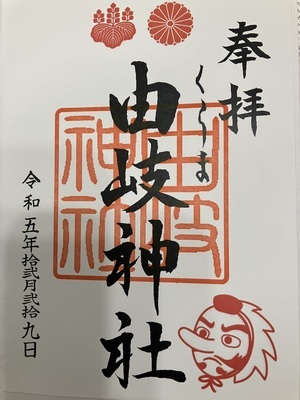 奉拝
くらま
由岐神社
由岐神社
令和五年拾弐月弐拾九日